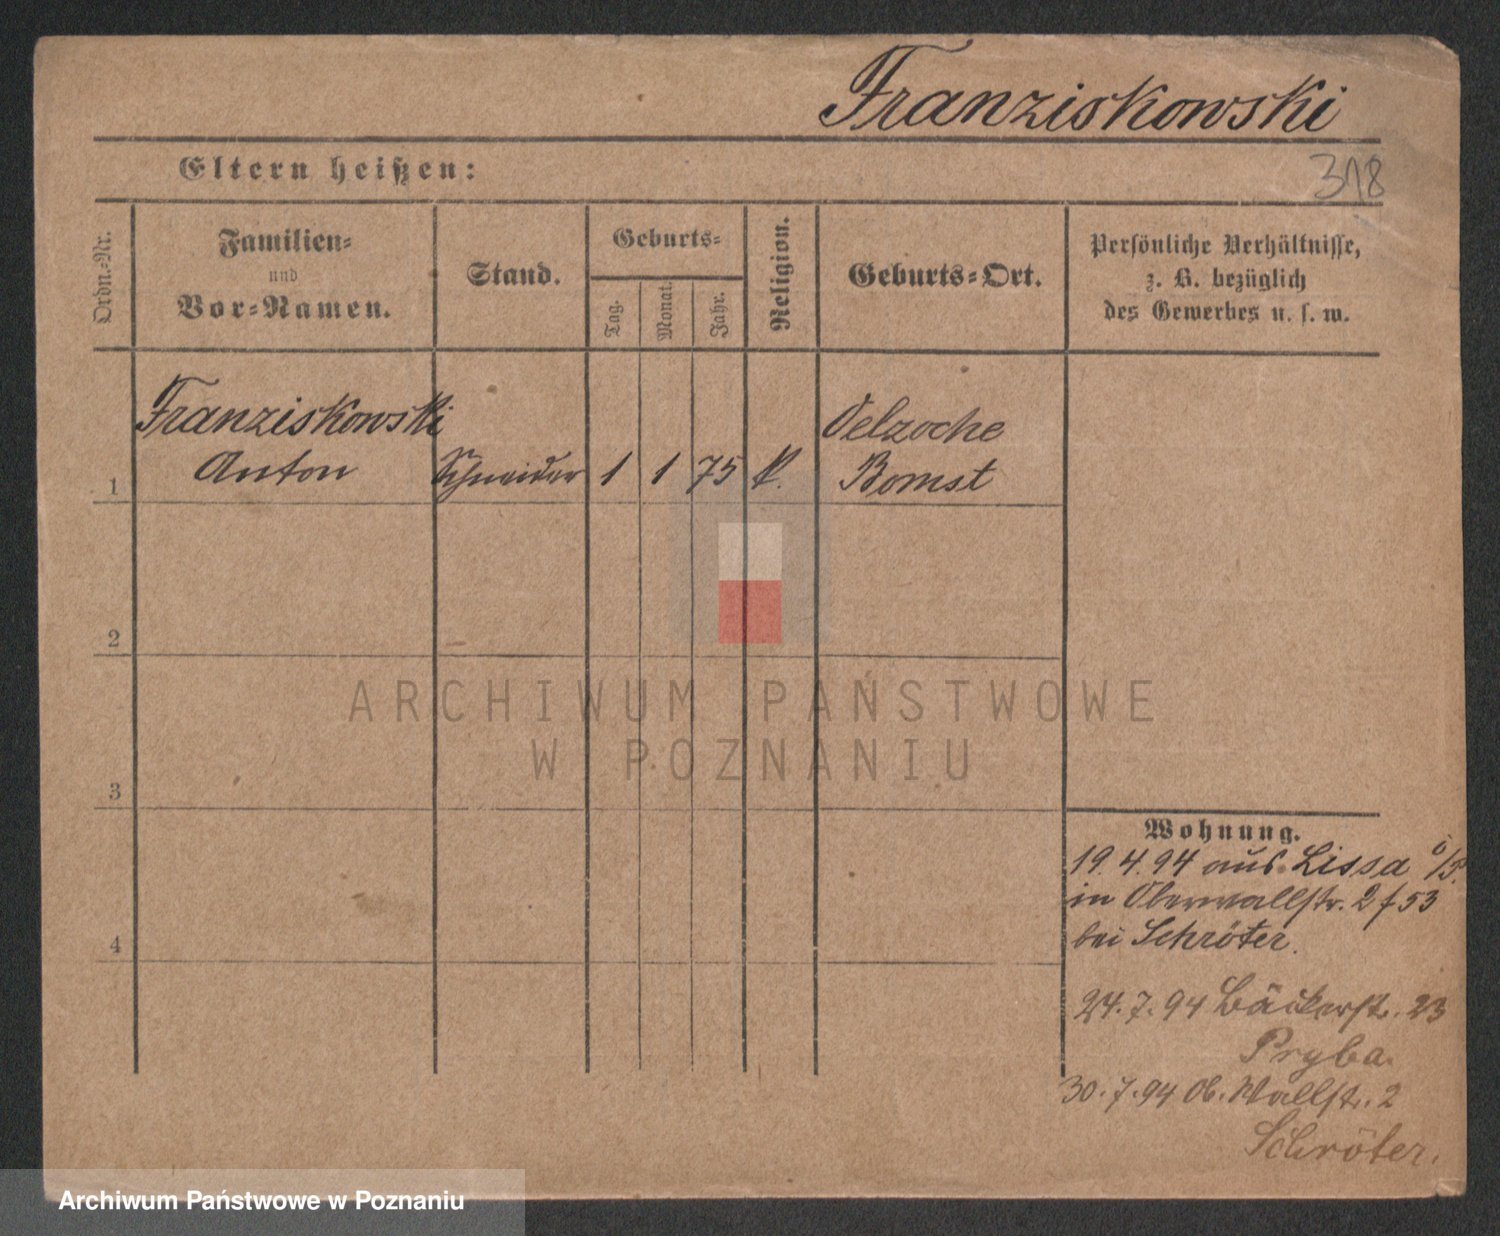 Franziskowski
Eltern heißen:
318
Ordn.-Nr.
Familien-
und
Vor-Namen.
Stand.
Geburts-
Tag.
Monat.
Jahr.
Religion.
Geburts-Ort.
Persönliche Verhältnisse,
z. B. bezüglich
des Gewerbes u. s. w.
Franziskowski
Anton
Schneider 1 1 75 k.
Oelzoche
Bomst
1
2
3
4
ARCHIWUM PAŃSTWOWE
W POZNANIU
Wohnung.
19.4.94 aus Lissa i/P.
in Oberwallstr. 2 f 53
bei Schröter.
24.7.94 Bäckerstr. 23
Pryba.
30.7.94 Ob. Wallstr. 2
Schröter.
Archiwum Państwowe w Poznaniu